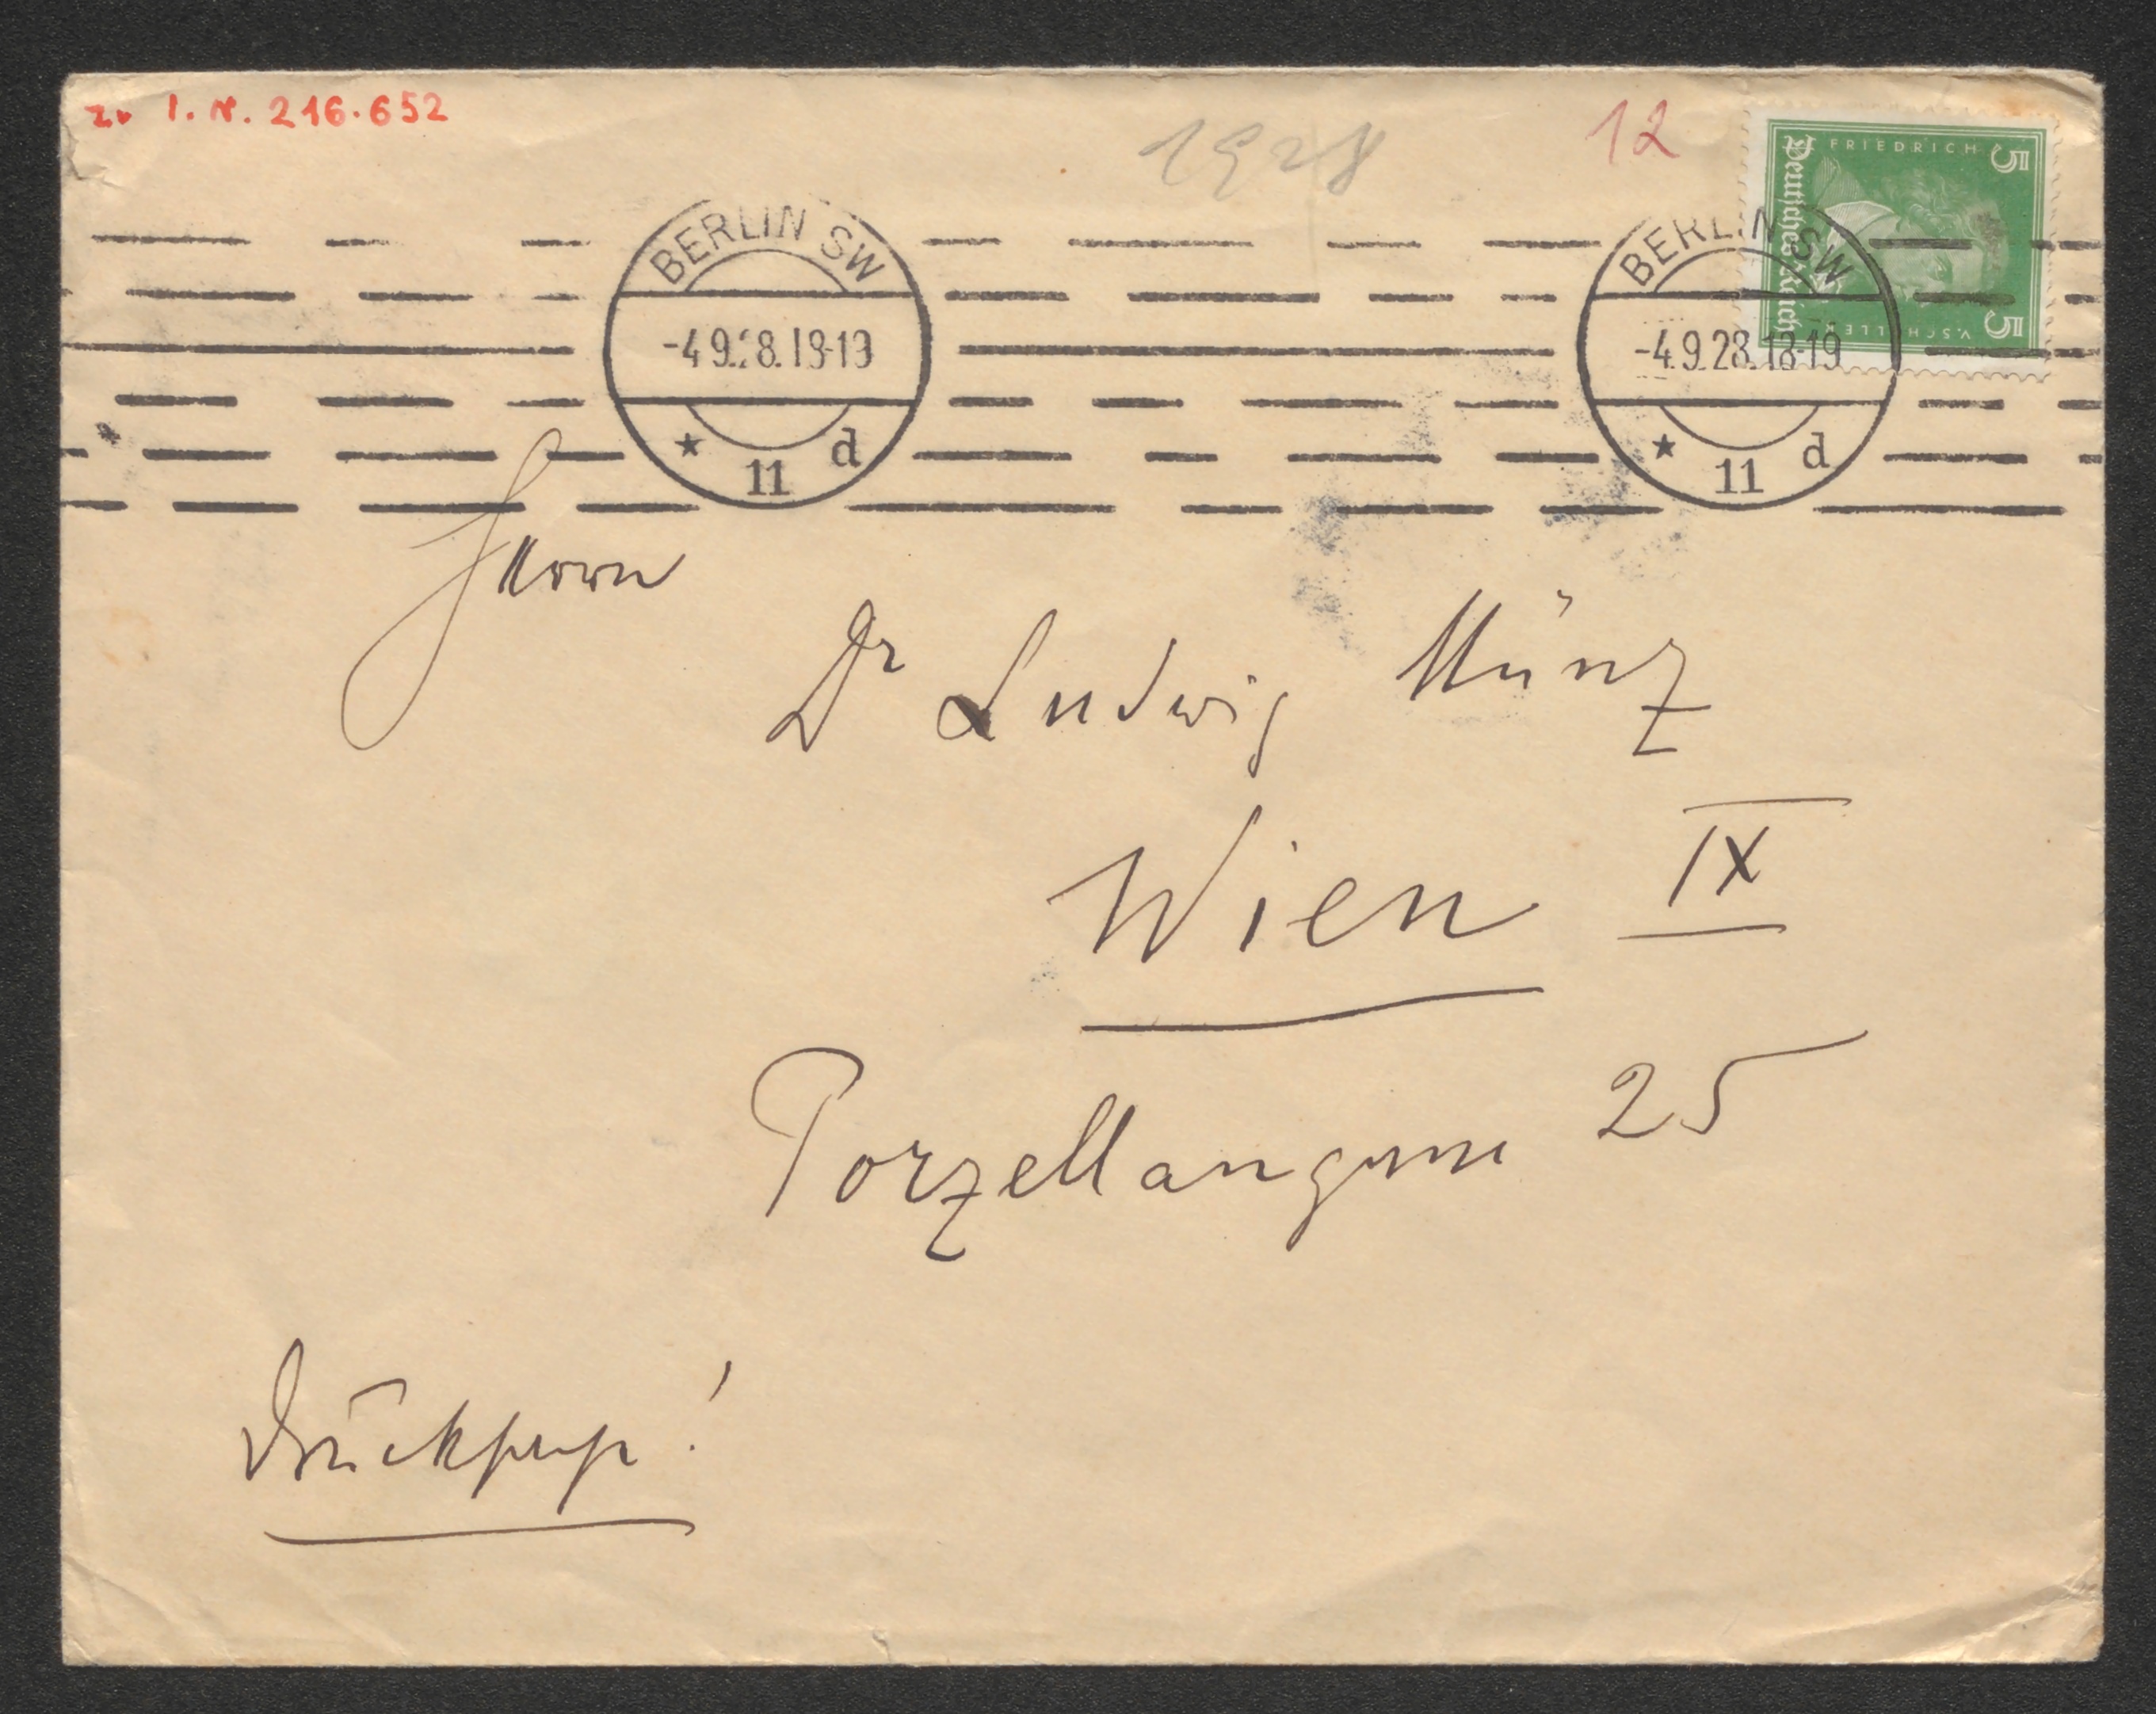 zu I. N. 216.652
1928
12
FRIEDRICH V. SCHILLER
5 5
Deutsches Reich
BERLIN SW
-4.9.28.18-19
* 11 d
BERLIN SW
-4.9.28.18-19
* 11 d
Herrn
Dr Ludwig Münz
Wien IX
Porzellangasse 25